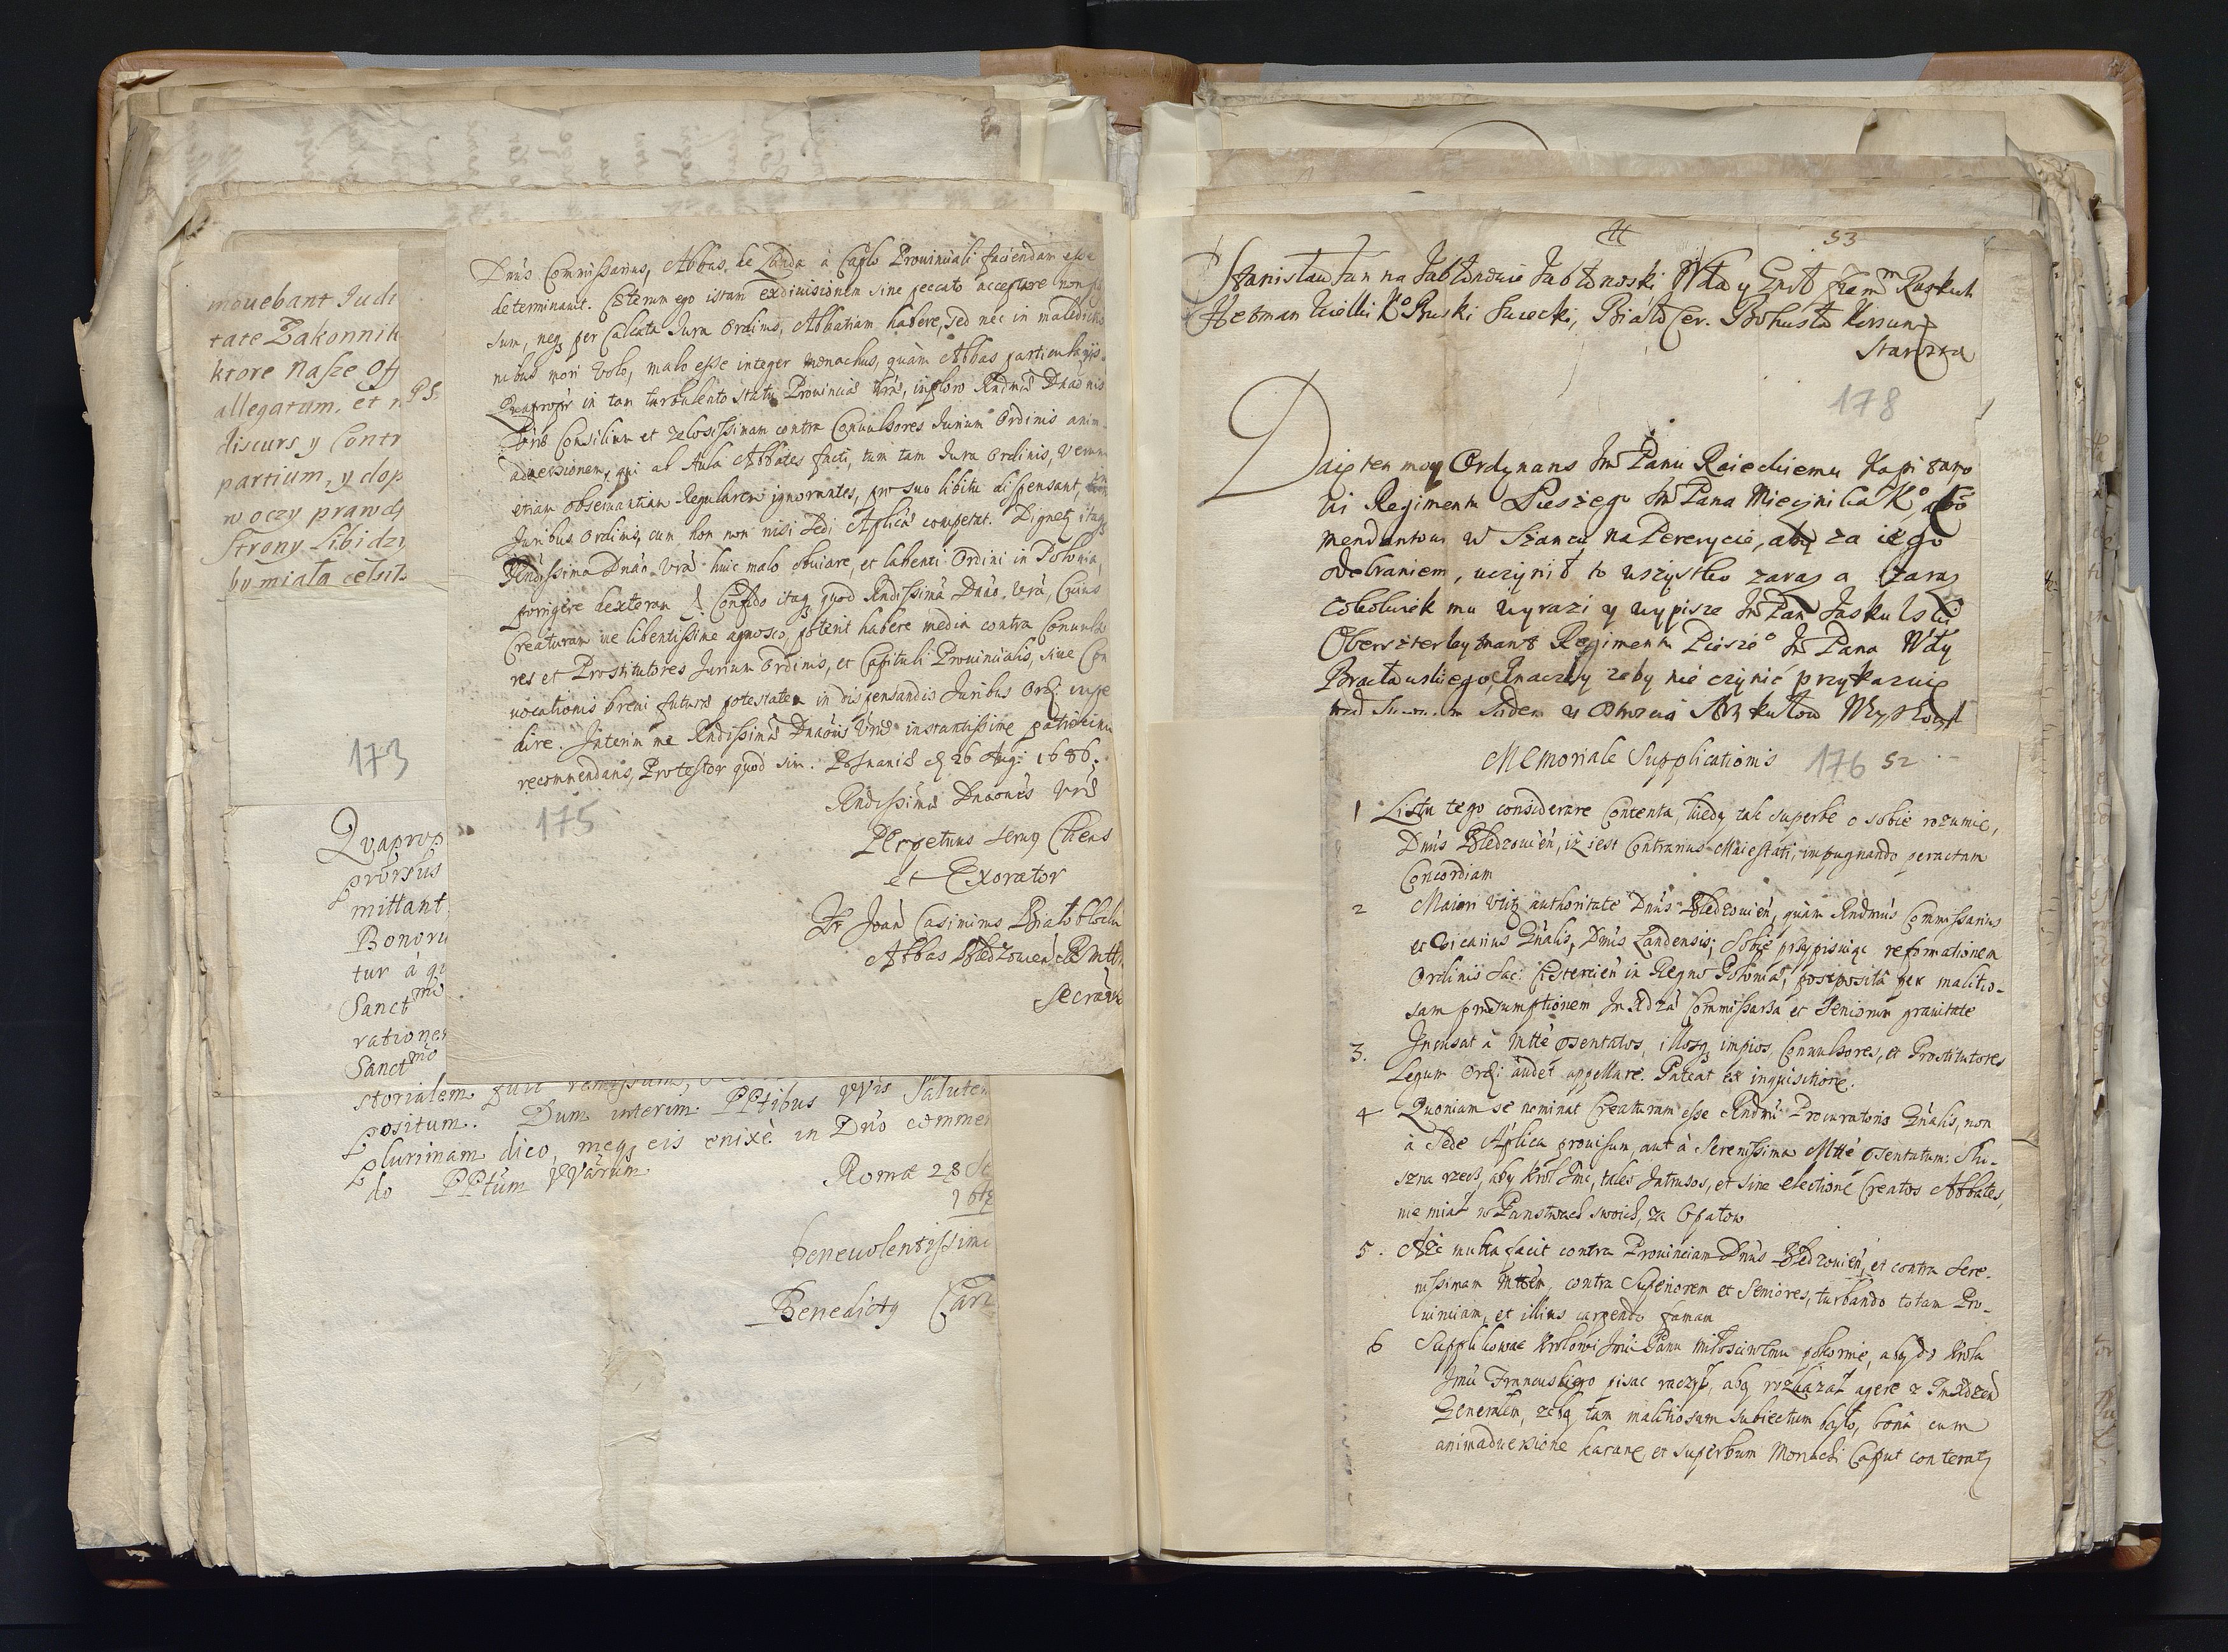 mouebant Judi
tate Zakonnik
ktore Nasze Off
allegatum, et n
discurs y Contr
partium, y dop
w oczy prawdz
Strony Libidzy
by miała celsit
PS.
173
Qvaprop
prorsus
mittant
Bonoru
tur à qu
Sanct mo
rationem
Sanct mo
storialem fuit remissum,
positum. Dum interim PPtibus VVis Salutem
plurimam dico, meq3 eis enixè in Dnō commen
do PPtūm VVārum
Romæ 28
benevolentissim
Benedictq Car
Dnūs Commissarius, Abbas de Landa à Caplo Prouinciali faciendam esse
determinauit. Cæterum ego istam exdiuisionem sine peccato acceptare non
sum, neq3 per Calcata Jura Ordinis, Abbatiam habere, sed nec in maledictio
nibus mori volo, malo esse integer monachus, quàm Abbas particularis.
Quapropr in tam turbulento statu Prouinciæ Vræ, imploro Rndmæ Dnaōnis
Vrīs Consilium et zelosissimam contra Conuulsores Jurium Ordinis anim
aduersionem, qui ab Aula Abbates facti, tum tam Jura Ordinis, verum
etiam obseruantiam Regularem ignorantes, pro suo libitu dispensant, in
Juribus Ordinis, cum hon non nisi Sedi Aplicæ competat. Dignetr itaq3
Rndissima Dnāo Vrā huic malo obuiare, et labenti Ordini in Polonia,
porrigere dexteram. Confido itaq3 quod Rndissimā Dnāo Vrā, Cuius
Creaturam me libentissime agnosco, poterit habere media contra Conuulso
res et Prostitutores Jurium Ordinis, et Capituli Prouincialis, siue Con
uocationis breui futuræ potestatem in dispensandis Juribus Ord: impe
dire. Interim me Rndissimæ Dnaōnis Vræ instantissime patrocinio
recommendans, Protestor quod sim. Posnaniæ d 26 Aug: 1686.
Rndissimæ Dnaōnis Vræ
Perpetuus seruq Cliens
et Exorator
Fr Joan Casimirus Białobłocki
Abbas Bledzouien
Secra
175
53
Stanisław Jan na Jabłonowie Jabłonoski Wda y Gnrł Ziem Ruskich
Hetman Wielki Ko Ruski Swiecki, Biało Cer. Bohusła Korsun
Starosta
178
Daię ten moy Ordynans Jm Panu Raieckiemu Kapitano
wi Regimentu Pieszego Jm Pana Miecznika Ko, abo
mendantowi w Szancu na Pererycie, aby za iego
odebraniem, uczynił to wszystko zaraz a zaraz
cokolwiek mu wyrazi y wypisze Jm Pan Jaskulski
Oberszterleytnant Regimentu Pieszo Jm Pana Wdy
Bracławskiego, Inaczey zeby nie czynić przykazuię
Memoriale Supplicationis 176 52
1 Listu tego considerare Contenta, kiedy tak superbe o sobie rozumie,
Dnūs Bledzouień, iż iest Contrarius Maiestati, impugnando peractam
Concordiam
2 Maiori vtitr authoritate Dnūs Bledzouień, quàm Rndmūs Commissarius
et Vicarius Gnālis, Dnūs Landensis; Sobie przypisuiąc reformationem
Ordinis Sac: Cistercień in Regno Poloniæ, postposita per malitio-
sam præsumptionem Jm Xdza Commissarza et Seniorum grauitate
3. Incusat à Mtte Præsentatos, illosq3 impios, Conuulsores, et Prostitutores
Legum Ord: audet appellare. Pateat ex inquisitione.
4 Quoniam se nominat Creaturam esse Rndmi Procuratoris Gnālis, non
à Sede Aplica prouisum, aut à Serenissima Mtte Præsentatum: Słu-
szna rzecz, aby Krol Jmc, tales Intrusos, et sine electione Creatos Abbates,
nie miał w Panstwach swoich, za Opatow.
5. Ale multa facit contra Prouinciam Dnūs Bledzouień, et contra Sere-
nissimam Mttem, contra Superiorem et Seniores, turbando totam Pro-
uinciam, et illius carpendo famam
6 Supplikowac Krolowi Jmci Panu Miłosciwemu pokornie, aby do Krola
Jmci Francuskiego pisac raczył, aby rozkazał agere z Jm Xdzem
Generałem, zeby tam malitiosum subiectum było, bona cum
animaduersione karane, et superbum Monachi Caput conteratr